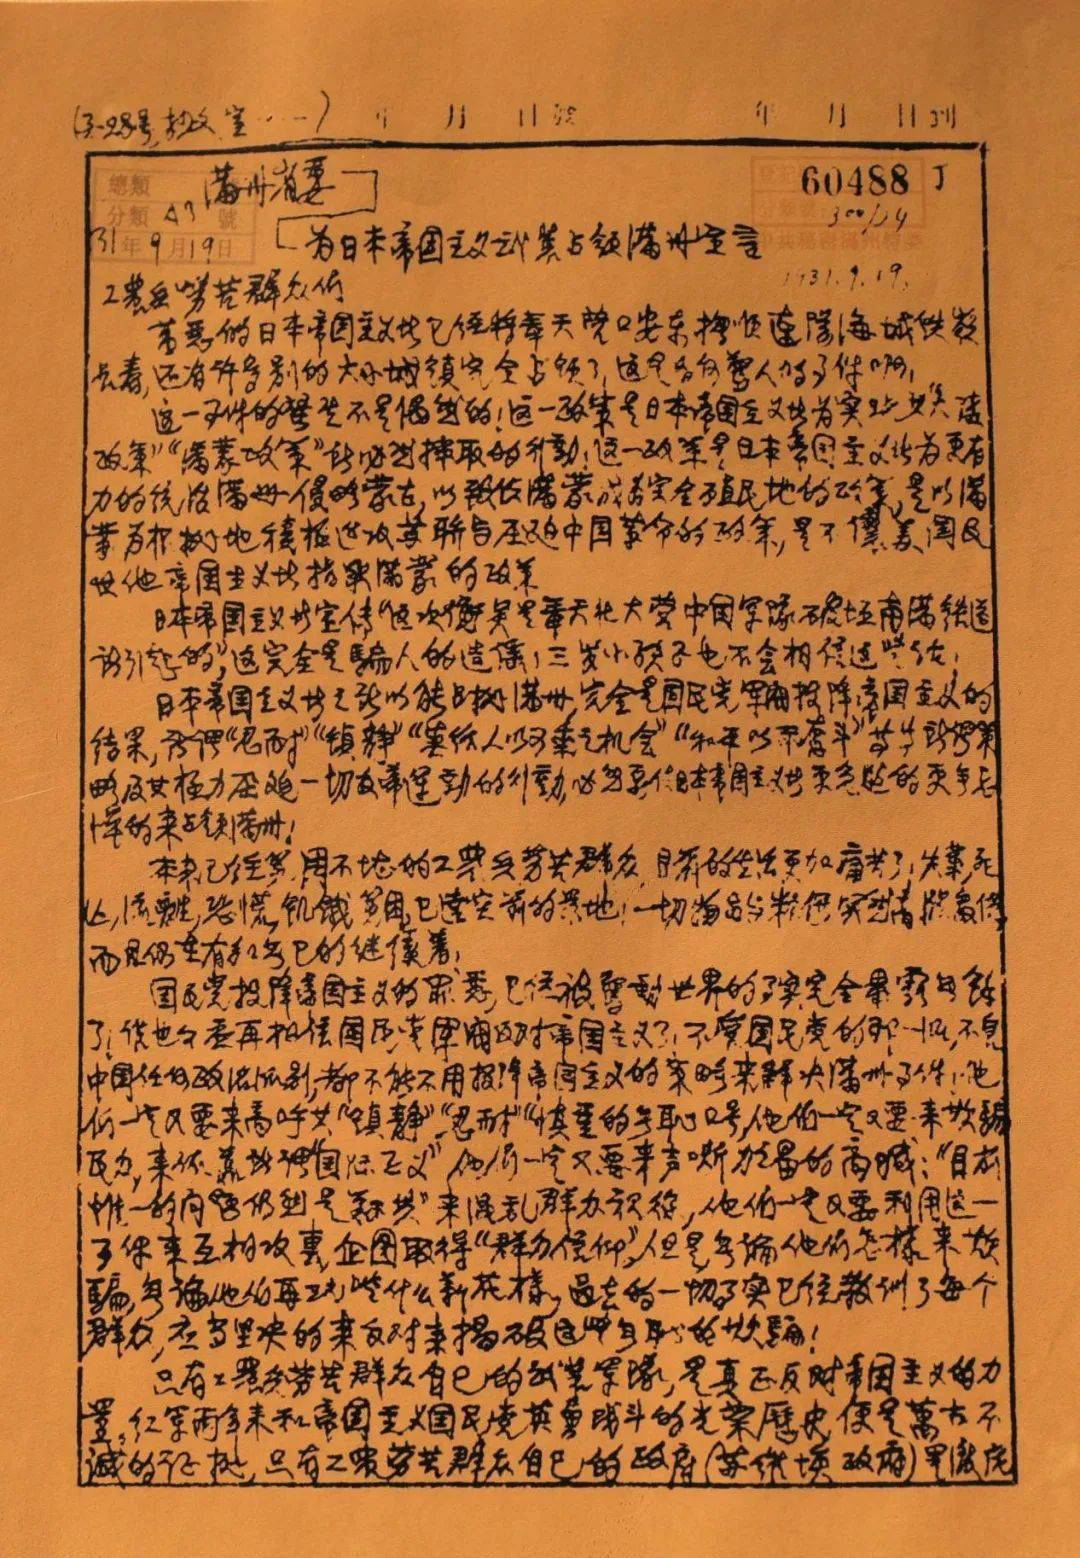 年 月 日 年 月 日到
總類 满州省委 60488 丁
分類 A3 號
31年9月19日 为日本帝国主义武装占领满州宣言
1931.9.19.
工农兵劳苦群众们
万恶的日本帝国主义者已经将奉天营口安东抚顺辽阳海城铁岭
长春,还有许多别的大小城镇完全占领了,这是多么惊人的事件啊!
这一事件的发生不是偶然的!这一政策是日本帝国主义者为实现其大陆
政策”“满蒙政策”所必然采取的行动!这一政策是日本帝国主义者为更有
力的统治满州,侵略蒙古,以致使满蒙成为完全殖民地的政策,是以满
蒙为根据地积极进攻苏联与压迫中国革命的政策,是不让美国及
其他帝国主义者指染满蒙的政策
日本帝国主义者宣传“这次冲突是奉天北大营中国军队破坏南满铁道
所引起的”,这完全是骗人的造谣,三岁小孩子也不会相信这些话!
日本帝国主义者之所以能占据满州,完全是国民党军阀投降帝国主义的
结果,所谓“忍耐”“镇静” “和平以示奋斗”等等
略及其极力压迫一切反帝运动的行动,必然要使日本帝国主义者更急进的更无忌
惮的来占领满州!
本来已经穷困不堪的工农兵劳苦群众,目前的生活更加痛苦了!失业,死
亡,流离,恐慌,饥饿贫困,已达空前的境地!一切物品与粮食突然高涨
而且仍在有加无已的继续着!
国民党投降帝国主义的罪恶,已经被惊动世界的事实完全暴露无余
了!谁也不要再相信国民党军阀反对帝国主义了!不管国民党的那一派,不管
中国任何政治派别,都不能不用投降帝国主义的策略来解决满州事件!他
们一定又要来高呼其“镇静”“忍耐”“慎重的无耻口号,他们一定又要来欺骗
民众,来依靠所谓“国际正义”他们一定又要来声嘶力竭的高喊:“目前
惟一的问题仍然是剿共”来混乱群众视线,他们一定又要利用这一
事件来互相攻击,企图取得“群众信仰”,但是无论他们怎样来欺
骗,无论他们再玩些什么新花样,过去的一切事实已经教训了每个
群众,应当坚决的来反对来揭破这些无耻的欺骗!
只有工农兵劳苦群众自己的武装军队,是真正反对帝国主义的力
量,红军两年来和帝国主义国民党英勇战斗的光荣历史,便是万古不
灭的证据,只有工农劳苦群众自己的政府(苏维埃政府)是彻底